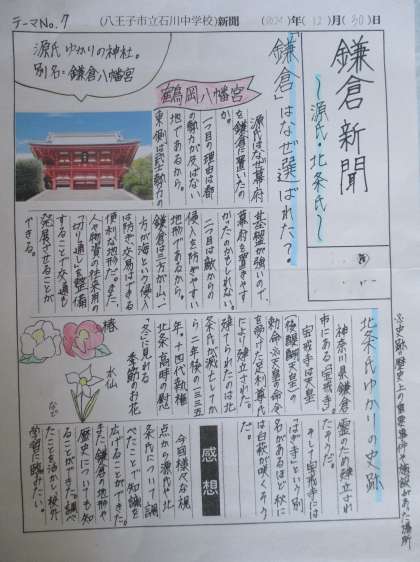 テーマNo.7
(八王子市立石川中学校)新聞
(2024)年(12)月(30)日
鎌倉新聞
～源氏・北条氏～
「鎌倉」はなぜ選ばれた？
源氏ゆかりの神社。
別名=鎌倉八幡宮
鶴岡八幡宮
源氏はなぜ幕府
を鎌倉に置いたの
一つ目の理由は都
の勢力が及ばない
地であるから。
東側は武士勢力の
基盤が強いので
幕府を置きやす
かったのかもしれない。
二つ目は敵からの
侵入を防ぎやすい
地形であるから。
鎌倉は三方が山、一
方が海という侵入
は防ぎ交易はできる
便利な地形だ。また、
人や物資の往来用の
「切り通し」を整備
することで交通も
発展させることが
できる。
北条氏ゆかりの史跡
※史跡=歴史上の重要事件や施設があった場所
神奈川県鎌倉
市にある「宝戒寺」。
宝戒寺は天皇
(後醍醐天皇)の
勅命(※天皇の命令)
を受けた足利尊氏
により建立された。
建てられたのは北
条氏が滅亡してか
ら二年後の一三三五
年。十四代執権
北条高時の慰
霊のため建立され
たそうだ。
そして宝戒寺には
「はぎ寺」という別
名があるほど秋に
は白萩が咲くそう
だ。
「冬に見れる
季節のお花
椿
水仙
など
感想
今回様々な視
点から源氏や北
条氏について調
べたことで知識を
広げることができた。
また鎌倉の地形や
歴史についても知
ることができた。調べ
たことを活かし校外
学習に臨みたい。